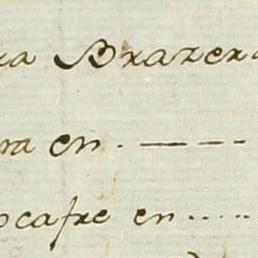 ra Brazera
ra en. — — —
ocafre en.....